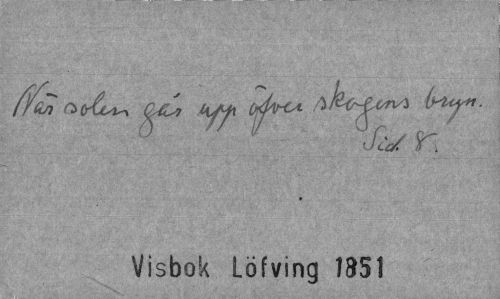 När solen går upp öfver skogens bryn.
Sid. 8.
Visbok Löfving 1851